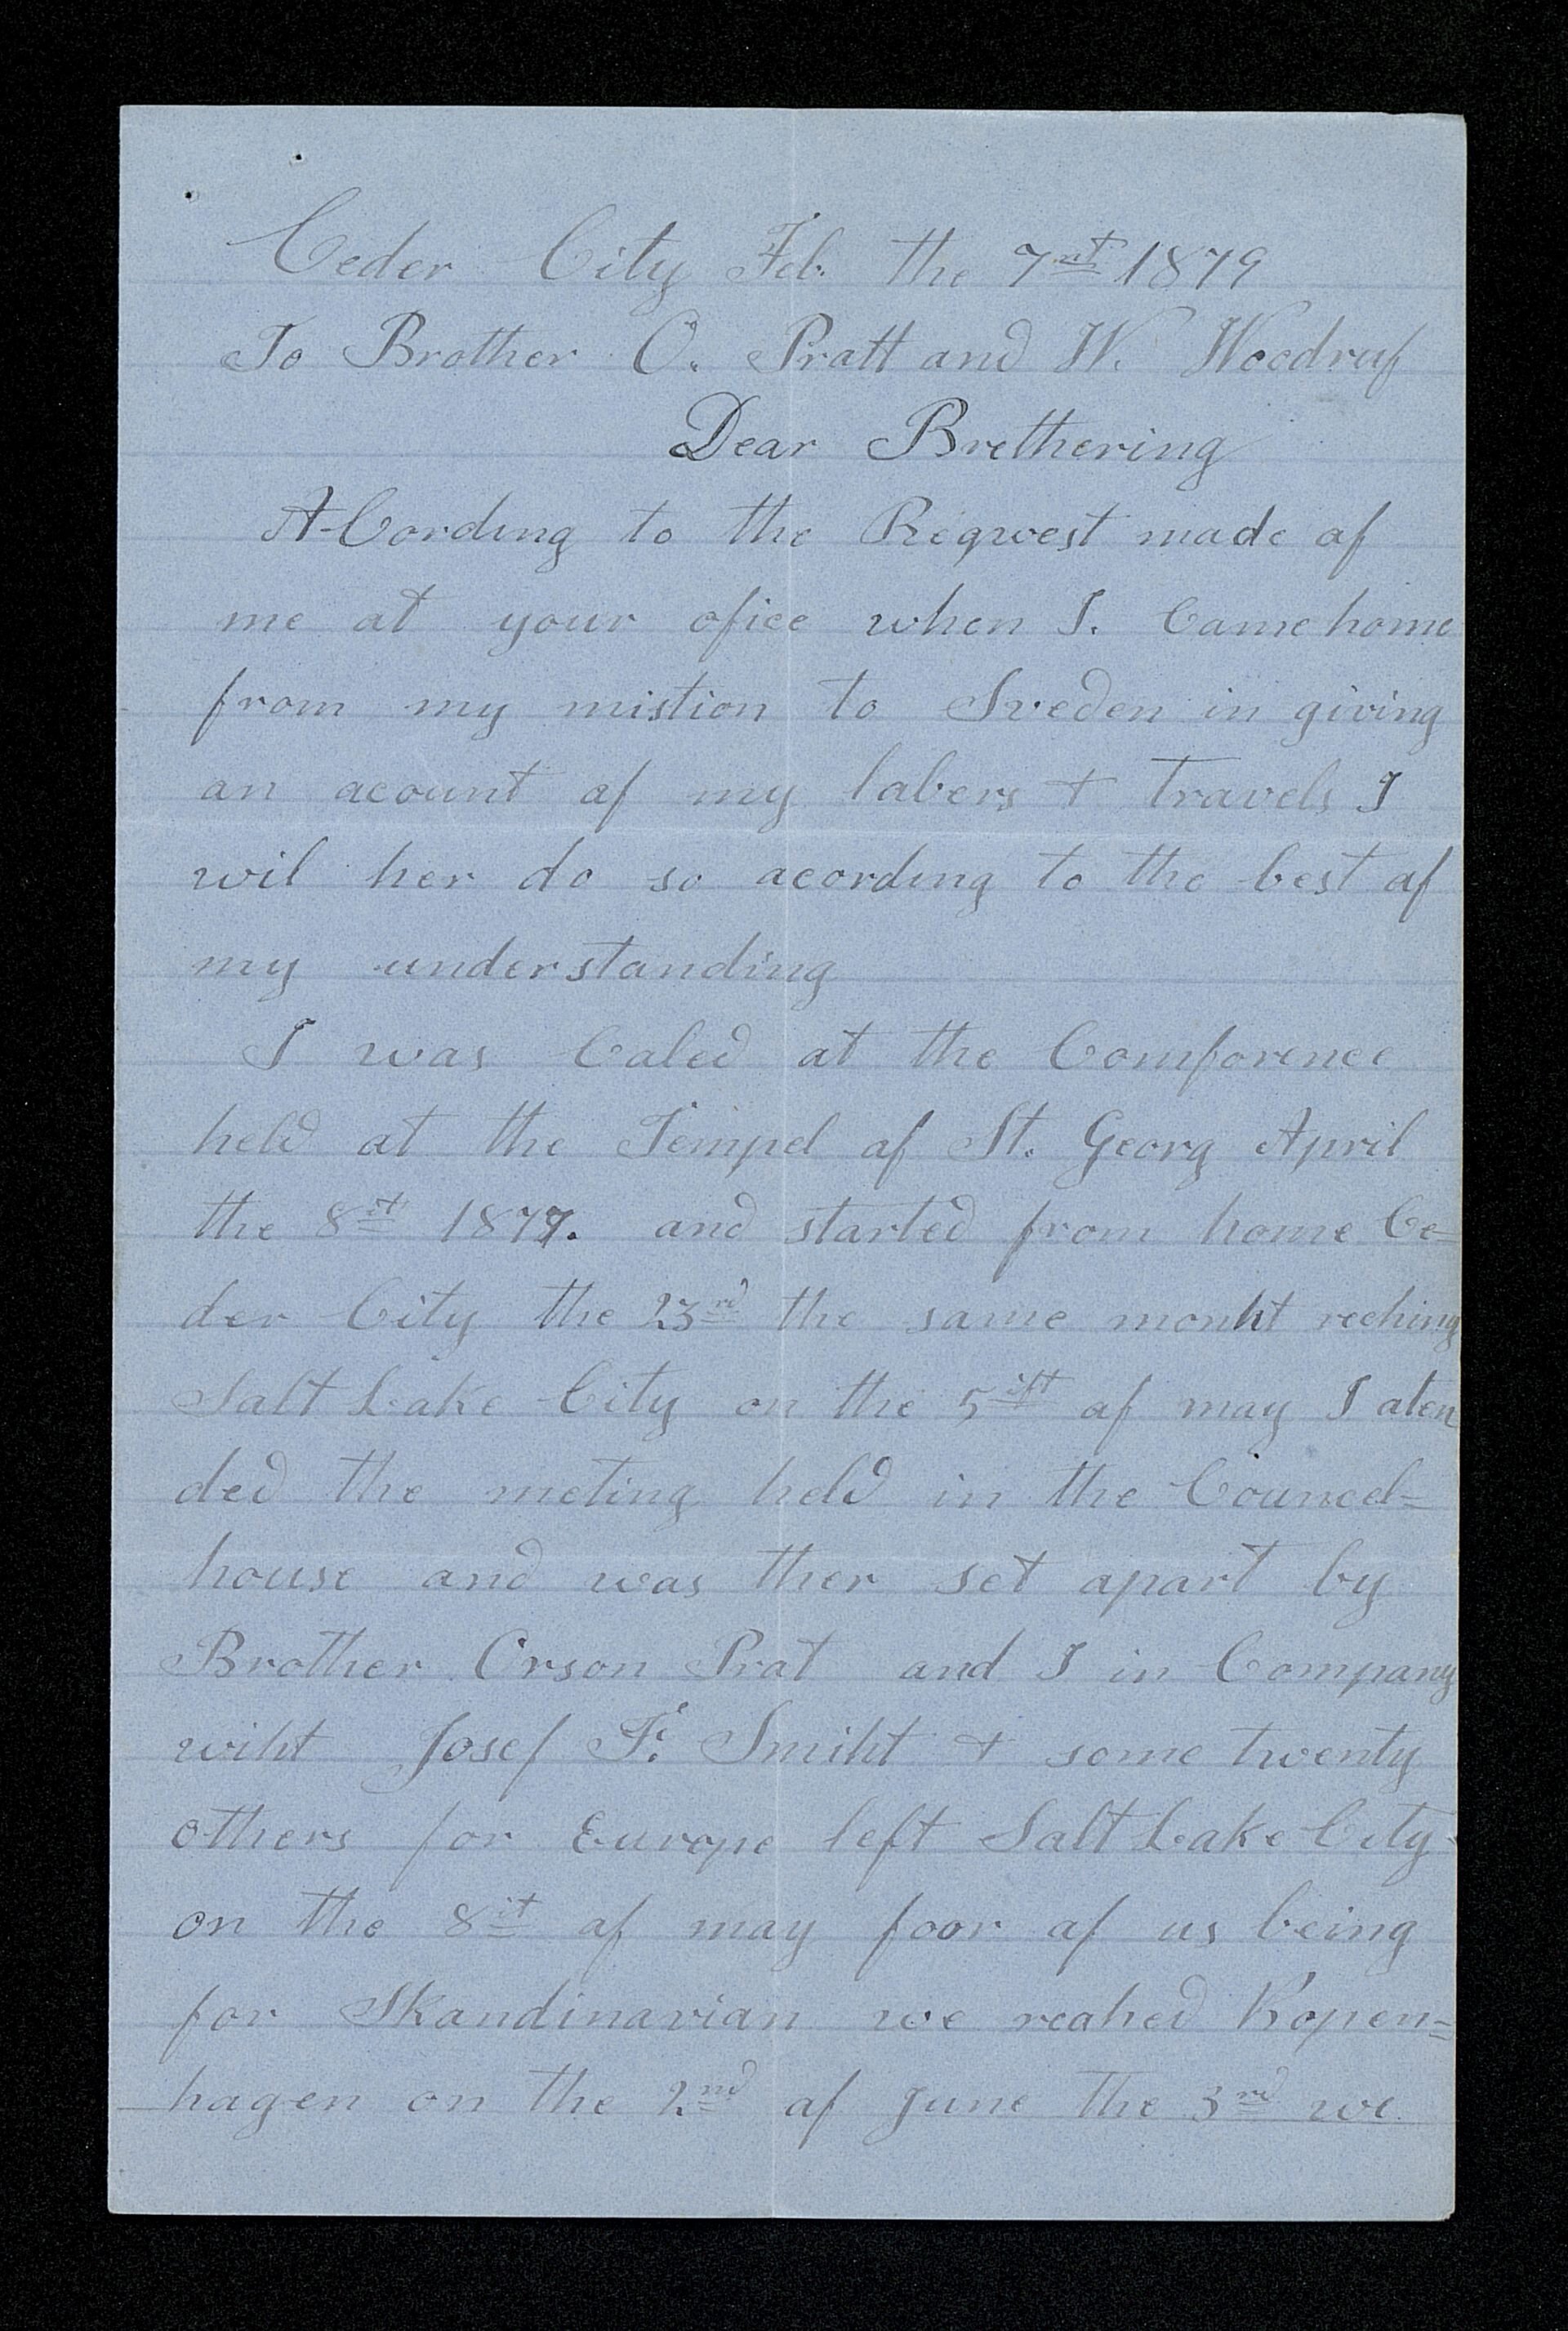 Ceder City Feb. the 7nt 1879
To Brother O. Pratt and W. Woodruf
Dear Brethering
ACording to the Reqwest made af
me at your ofice when I. Came home
from my mistion to Sveden in giving
an acount af my labers + travels I
wil her do so acording to the best af
my understanding
I was Caled at the Comforence
held at the Tempel af St. Georg April
the 8st 1877. and started from home Ce=
der City the 23rd the same monht reching
Salt Lake City on the 5ift af may I aten
ded the meting held in the Councel=
house and was ther set apart by
Brother Orson Prat and I in Company
wiht Josef F. Smiht + some twenty
others for Europe left Salt Lake City
on the 8it af may foor af us being
for Skandinavian we reahed Kopen=
hagen on the 2nd af June the 3rd we